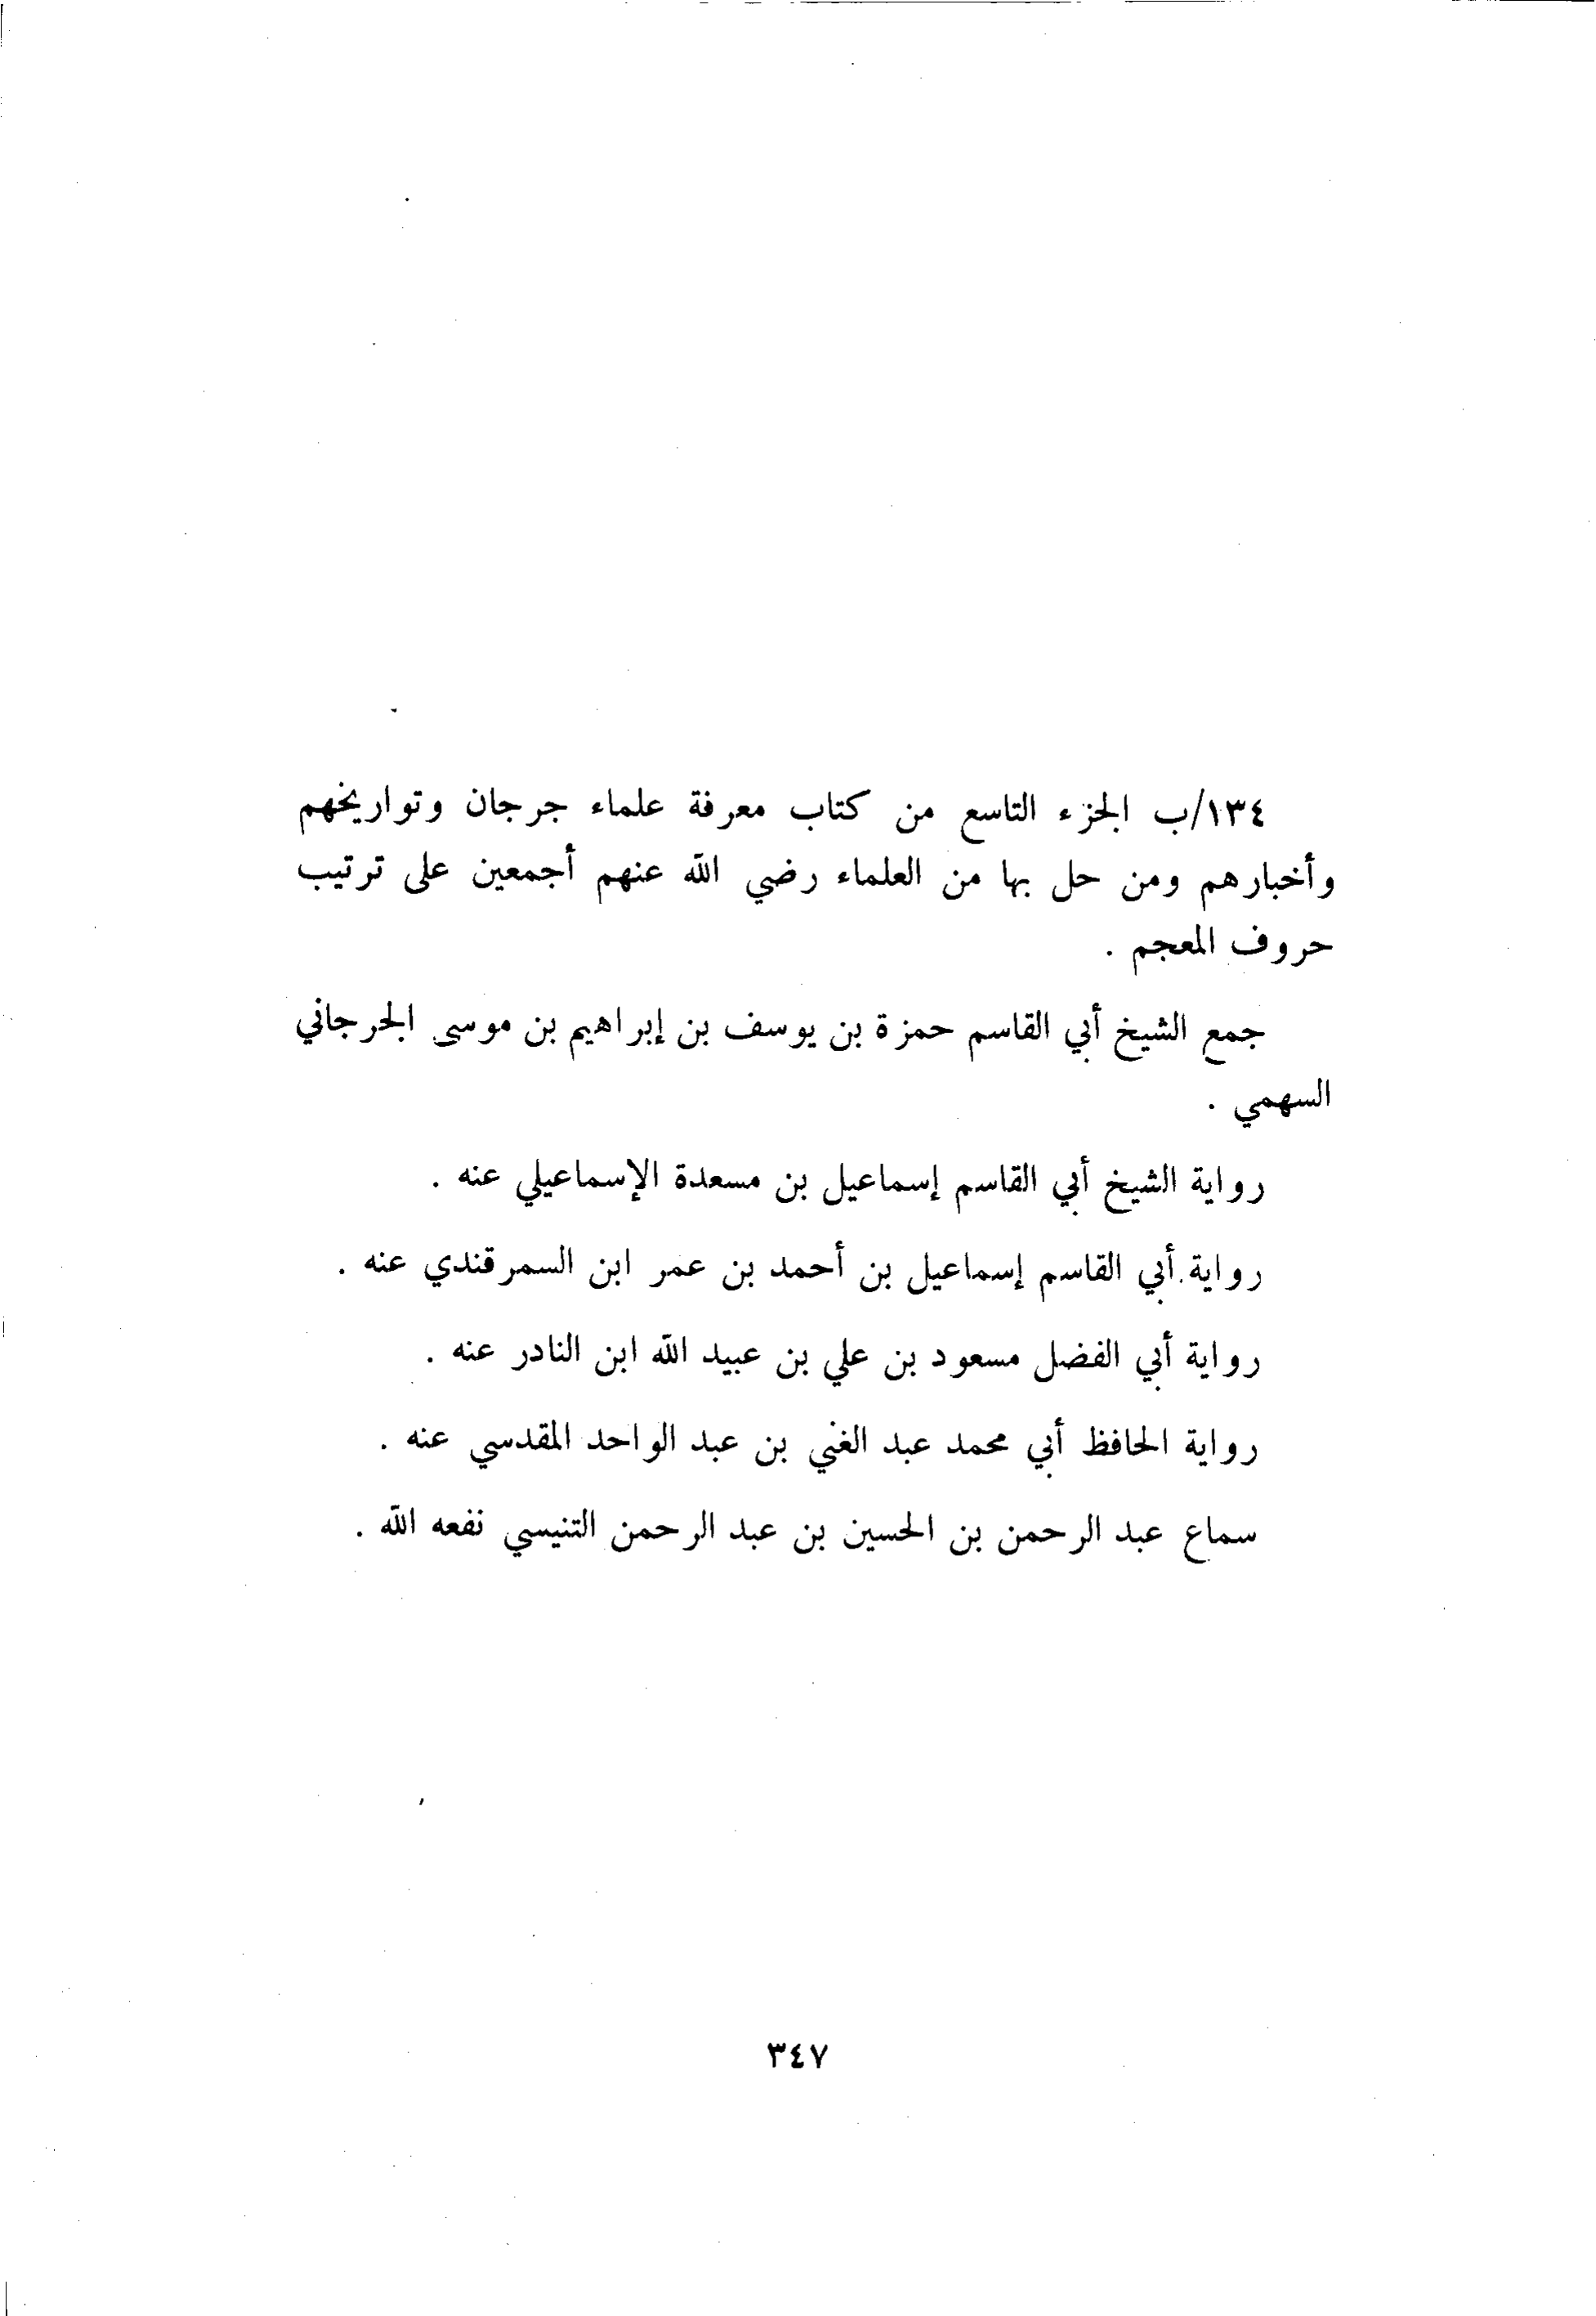 ١٣٤/ب الجزء التاسع من كتاب معرفة علماء جرجان وتواريخهم
وأخبارهم ومن حل بها من العلماء رضي الله عنهم أجمعين على ترتيب
حروف المعجم .
جمع الشيخ أبي القاسم حمزة بن يوسف بن إبراهيم بن موسى الجرجاني
السهمي .
رواية الشيخ أبي القاسم إسماعيل بن مسعدة الإسماعيلي عنه .
رواية أبي القاسم إسماعيل بن أحمد بن عمر ابن السمرقندي عنه .
رواية أبي الفضل مسعود بن علي بن عبيد الله ابن النادر عنه .
رواية الحافظ أبي محمد عبد الغني بن عبد الواحد المقدسي عنه .
سماع عبد الرحمن بن الحسين بن عبد الرحمن التنيسي نفعه الله .
٣٤٧